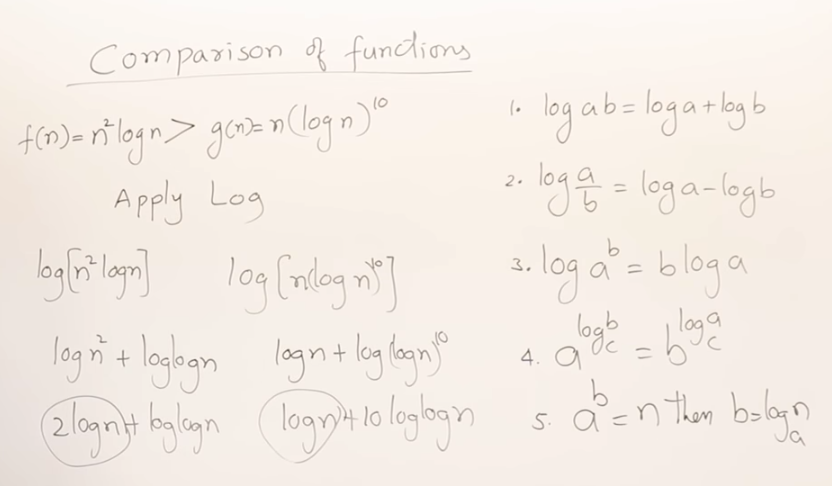 Comparison of functions
f(n) = n² log n > g(n) = n (log n)¹⁰
Apply Log
log[n² logn]    log [n(logn)¹⁰]
log n² + loglogn    logn + log (logn)¹⁰
2logn + loglogn    logn + 10 loglogn
1. log ab = loga + logb
2. log a/b = log a - logb
3. log a^b = b log a
4. a^(log_c b) = b^(log_c a)
5. a^b = n then b = log_a n